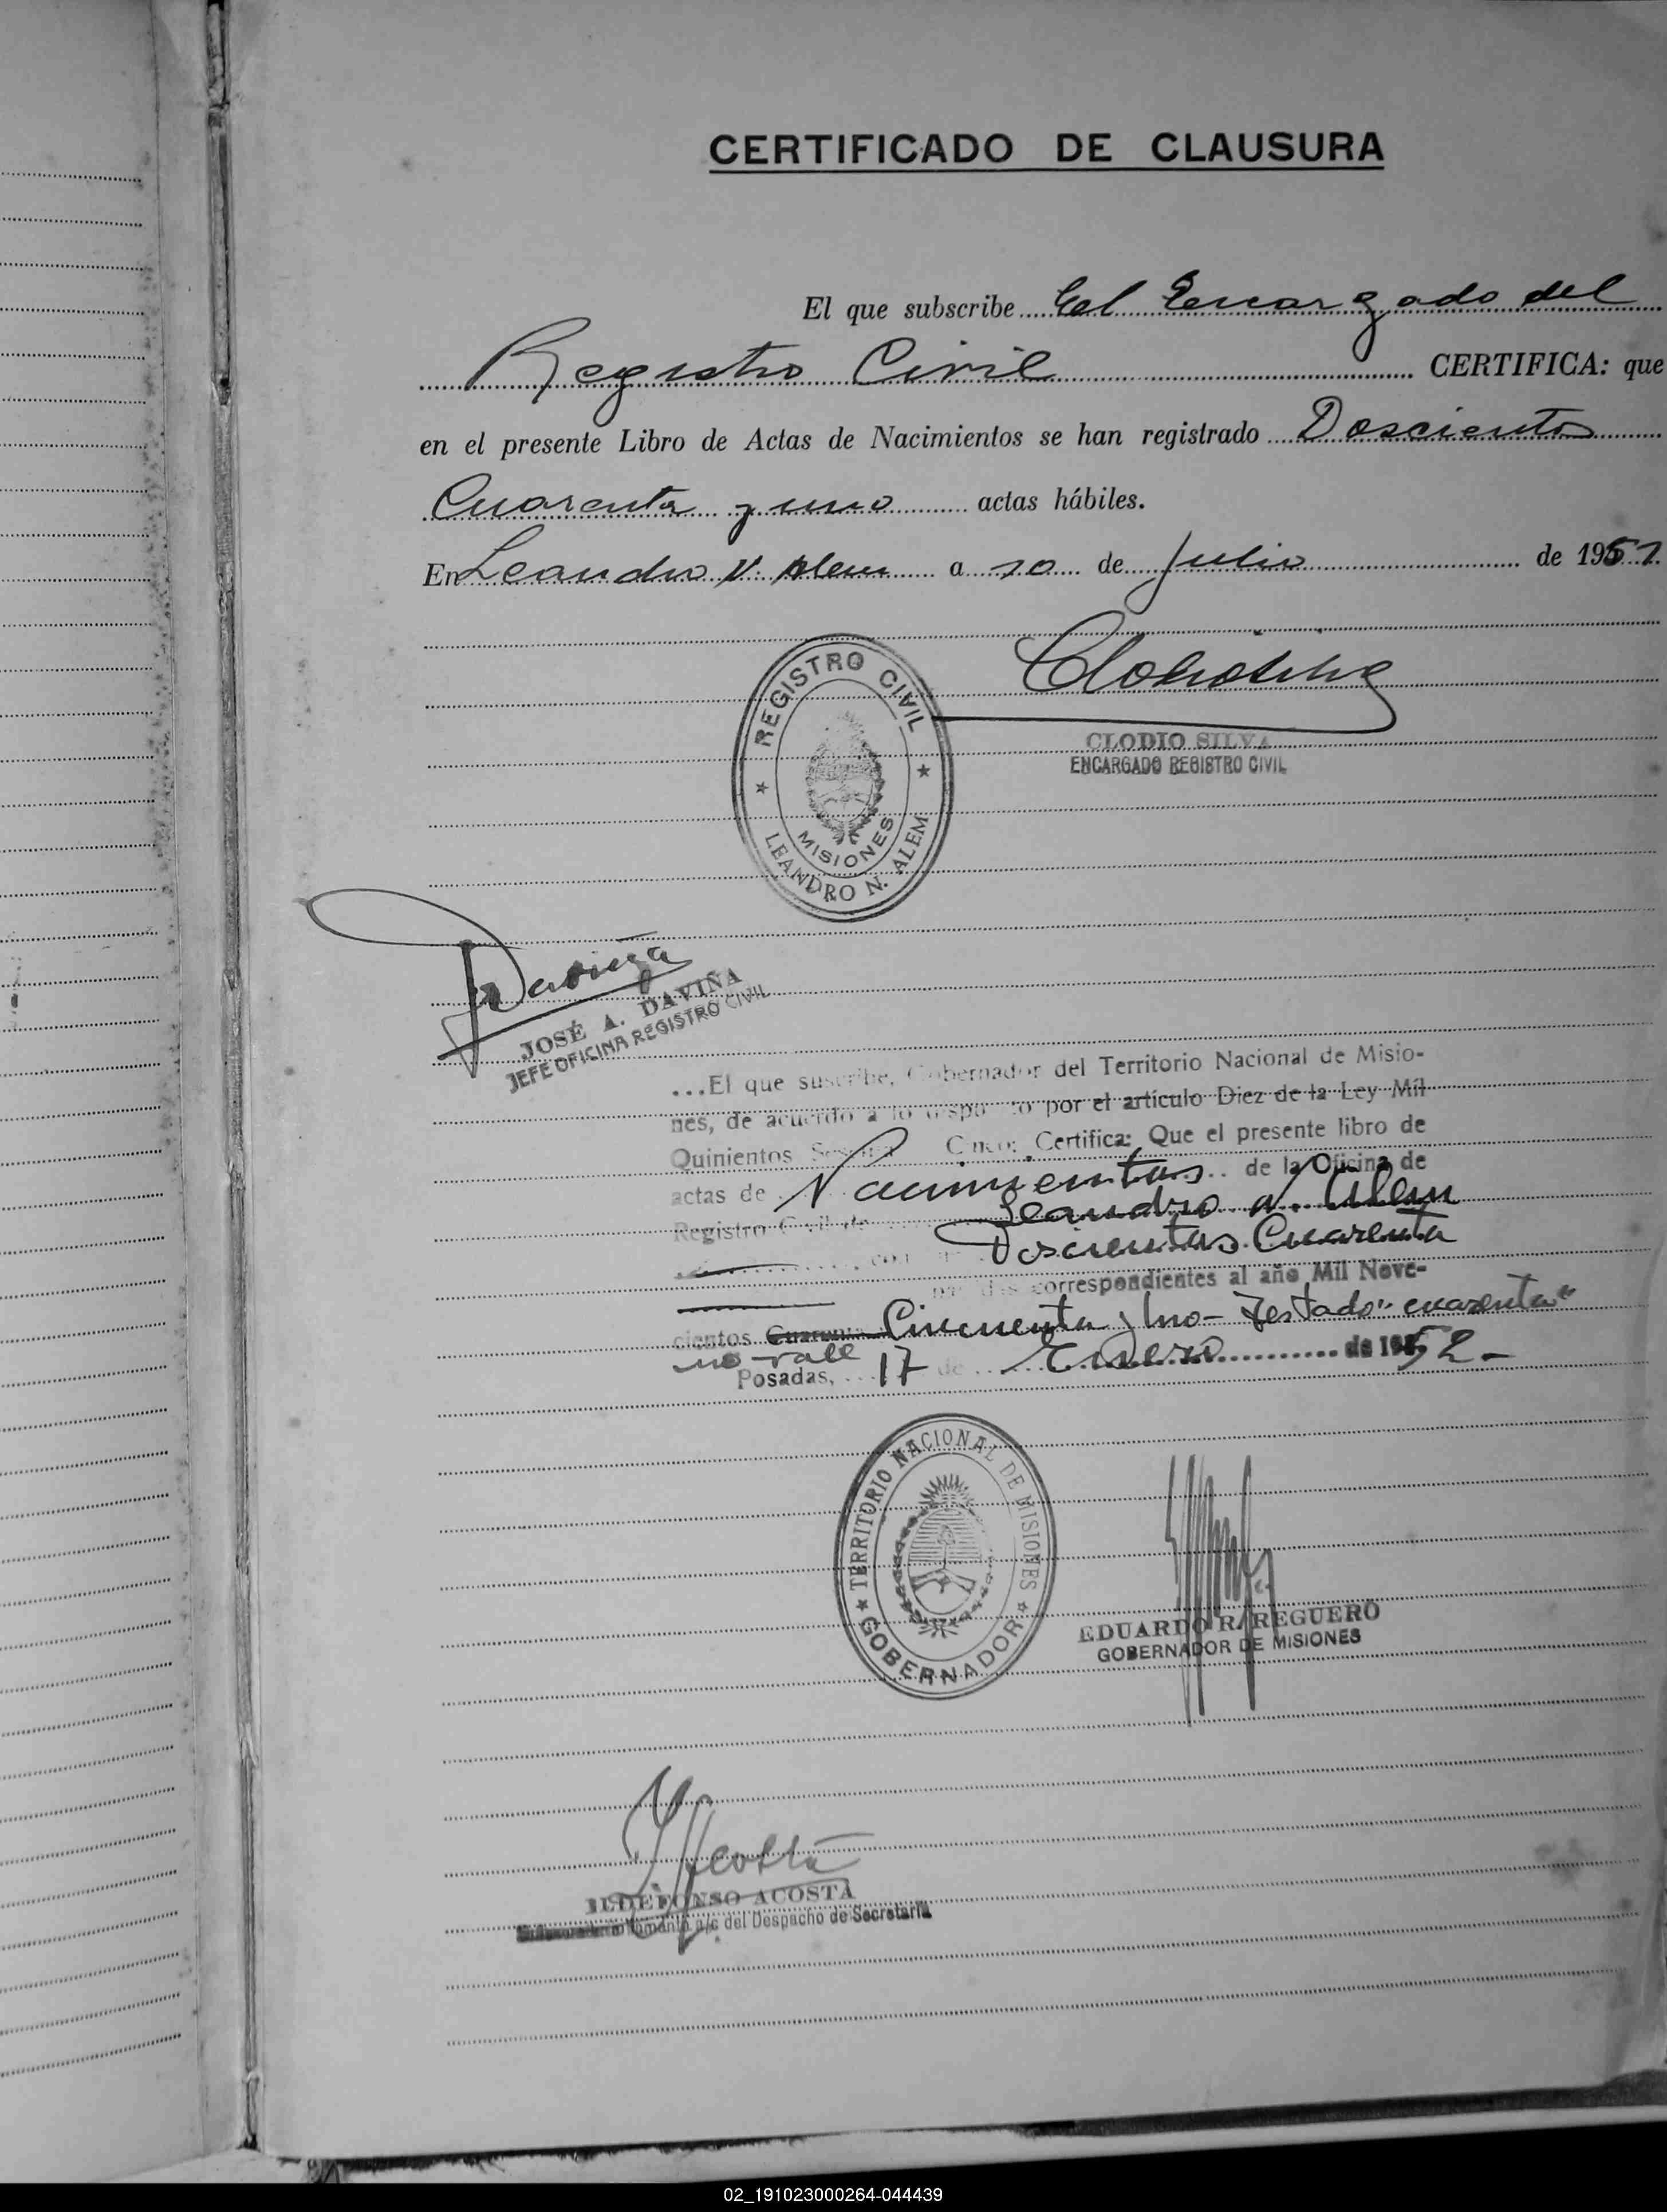 CERTIFICADO DE CLAUSURA
El que subscribe El Encargado del
Registro Civil CERTIFICA: que
en el presente Libro de Actas de Nacimientos se han registrado Doscientos
Cuarenta y uno actas hábiles.
En Leandro N. Alem a 10 de Julio de 1951.
REGISTRO CIVIL
MISIONES
LEANDRO N. ALEM
CLODIO SILVA
ENCARGADO REGISTRO CIVIL
Daviña
JOSÉ A. DAVIÑA
JEFE OFICINA REGISTRO CIVIL
...El que suscribe, Gobernador del Territorio Nacional de Misio-
nes, de acuerdo a lo dispuesto por el artículo Diez de la Ley Mil
Quinientos Sesenta Cinco; Certifica: Que el presente libro de
actas de Nacimientos de la Oficina de
Registro Civil de Leandro N. Alem
Doscientas Cuarenta
correspondientes al año Mil Nove-
cientos Cuarenta Cincuenta y Uno - Testado "cuarenta"
no vale
Posadas, 17 de Enero de 1952.-
TERRITORIO NACIONAL DE MISIONES
GOBERNADOR
EDUARDO R. REGUERO
GOBERNADOR DE MISIONES
Acosta
ILDEFONSO ACOSTA
a/c del Despacho de Secretaría
02_191023000264-044439